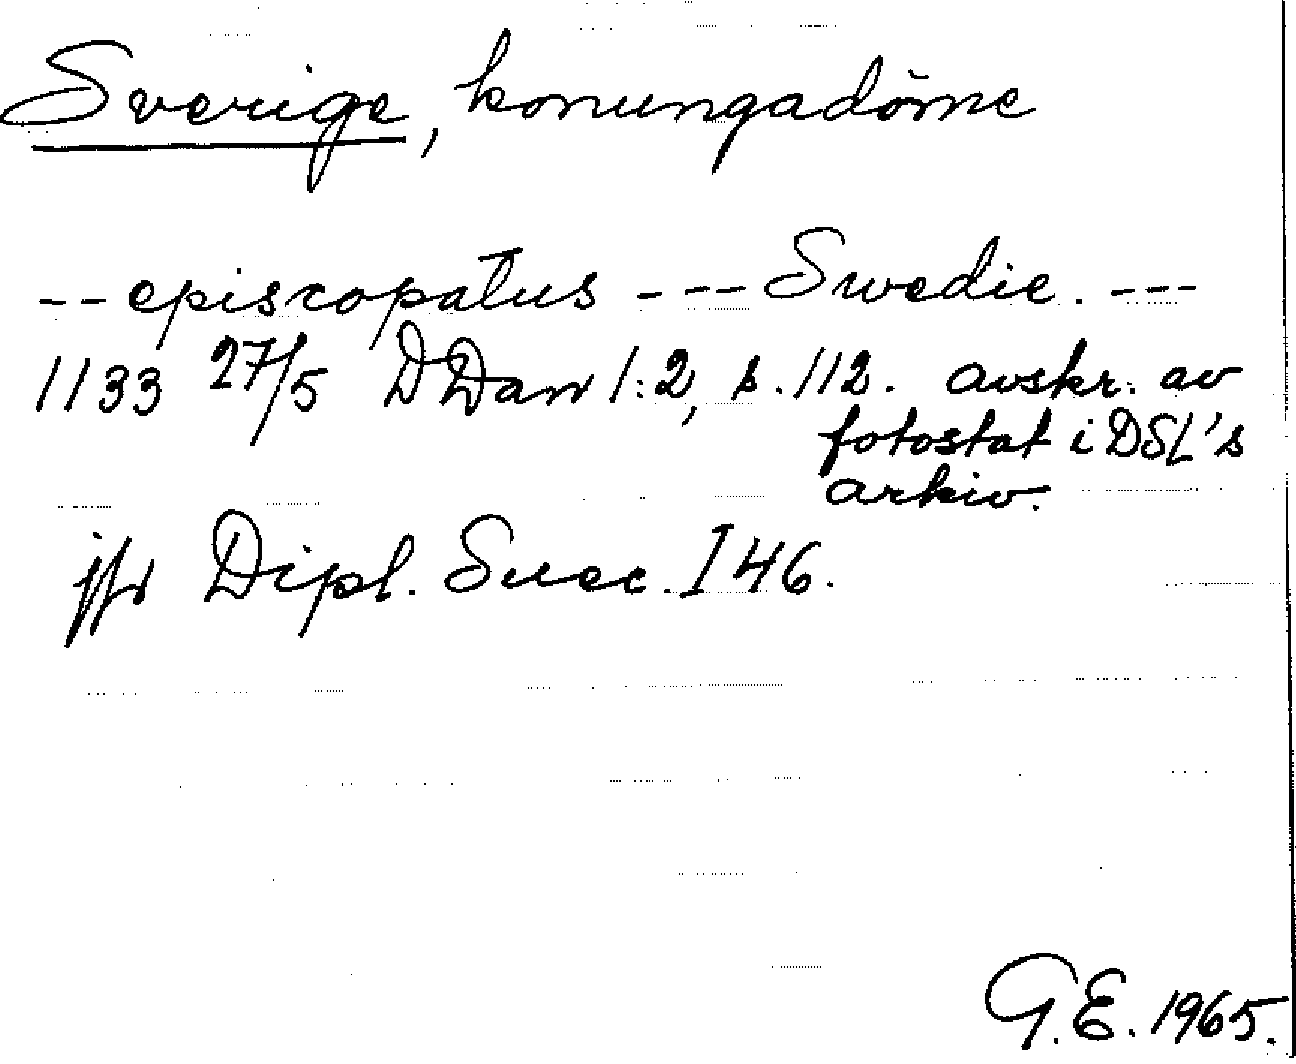 Sverige, konungadöme
-- episcopatus --- Swedie. ---
1133 27/5 DDan 1:2, s. 112. avskr. av
fotostat i DSL's
arkiv.
jfr Dipl. Suec. I 46.
G.E. 1965.